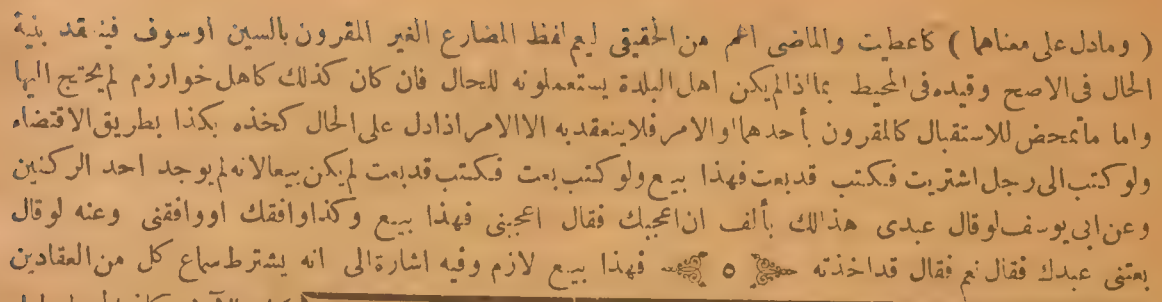 ( ومادل على معناهما ) كاعطيت والماضى اعم من الحقيقى ليعم لفظ المضارع الغير المقرون بالسين او سوف فينعقد بنية
الحال فى الاصح وقيده فى المحيط بما اذا لم يكن اهل البلدة يستعملونه للحال فان كان كذلك كاهل خوارزم لم يحتج اليها
واما ما تمحض للاستقبال كالمقرون بأحدهما او الامر فلا ينعقد به الا الامر اذا دل على الحال كخذه بكذا بطريق الاقتضاء
ولو كتب الى رجل اشتريت فكتب قد بعت فهذا بيع ولو كتب بعت فكتب قد بعت لم يكن بيعا لانه لم يوجد احد الركنين
وعن ابى يوسف لو قال عبدى هذا لك بألف ان اعجبك فقال اعجبنى فهذا بيع وكذا وافقك او وافقنى وعنه لو قال
بعتنى عبدك فقال نعم فقال قد اخذته ٥ فهذا بيع لازم وفيه اشارة الى انه يشترط سماع كل من العقادين